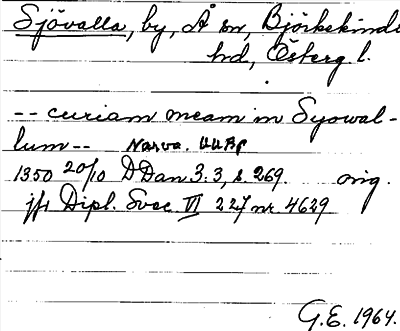 Sjövalla, by, Å sn, Björkekinds
hd, Österg. l.
-- curiam meam in Syowal-
lum -- Narva. UUB
1350 20/10 DDan 3:3, s. 269. orig.
jfr Dipl. Svec. VI 227 nr 4629
G.E. 1964.